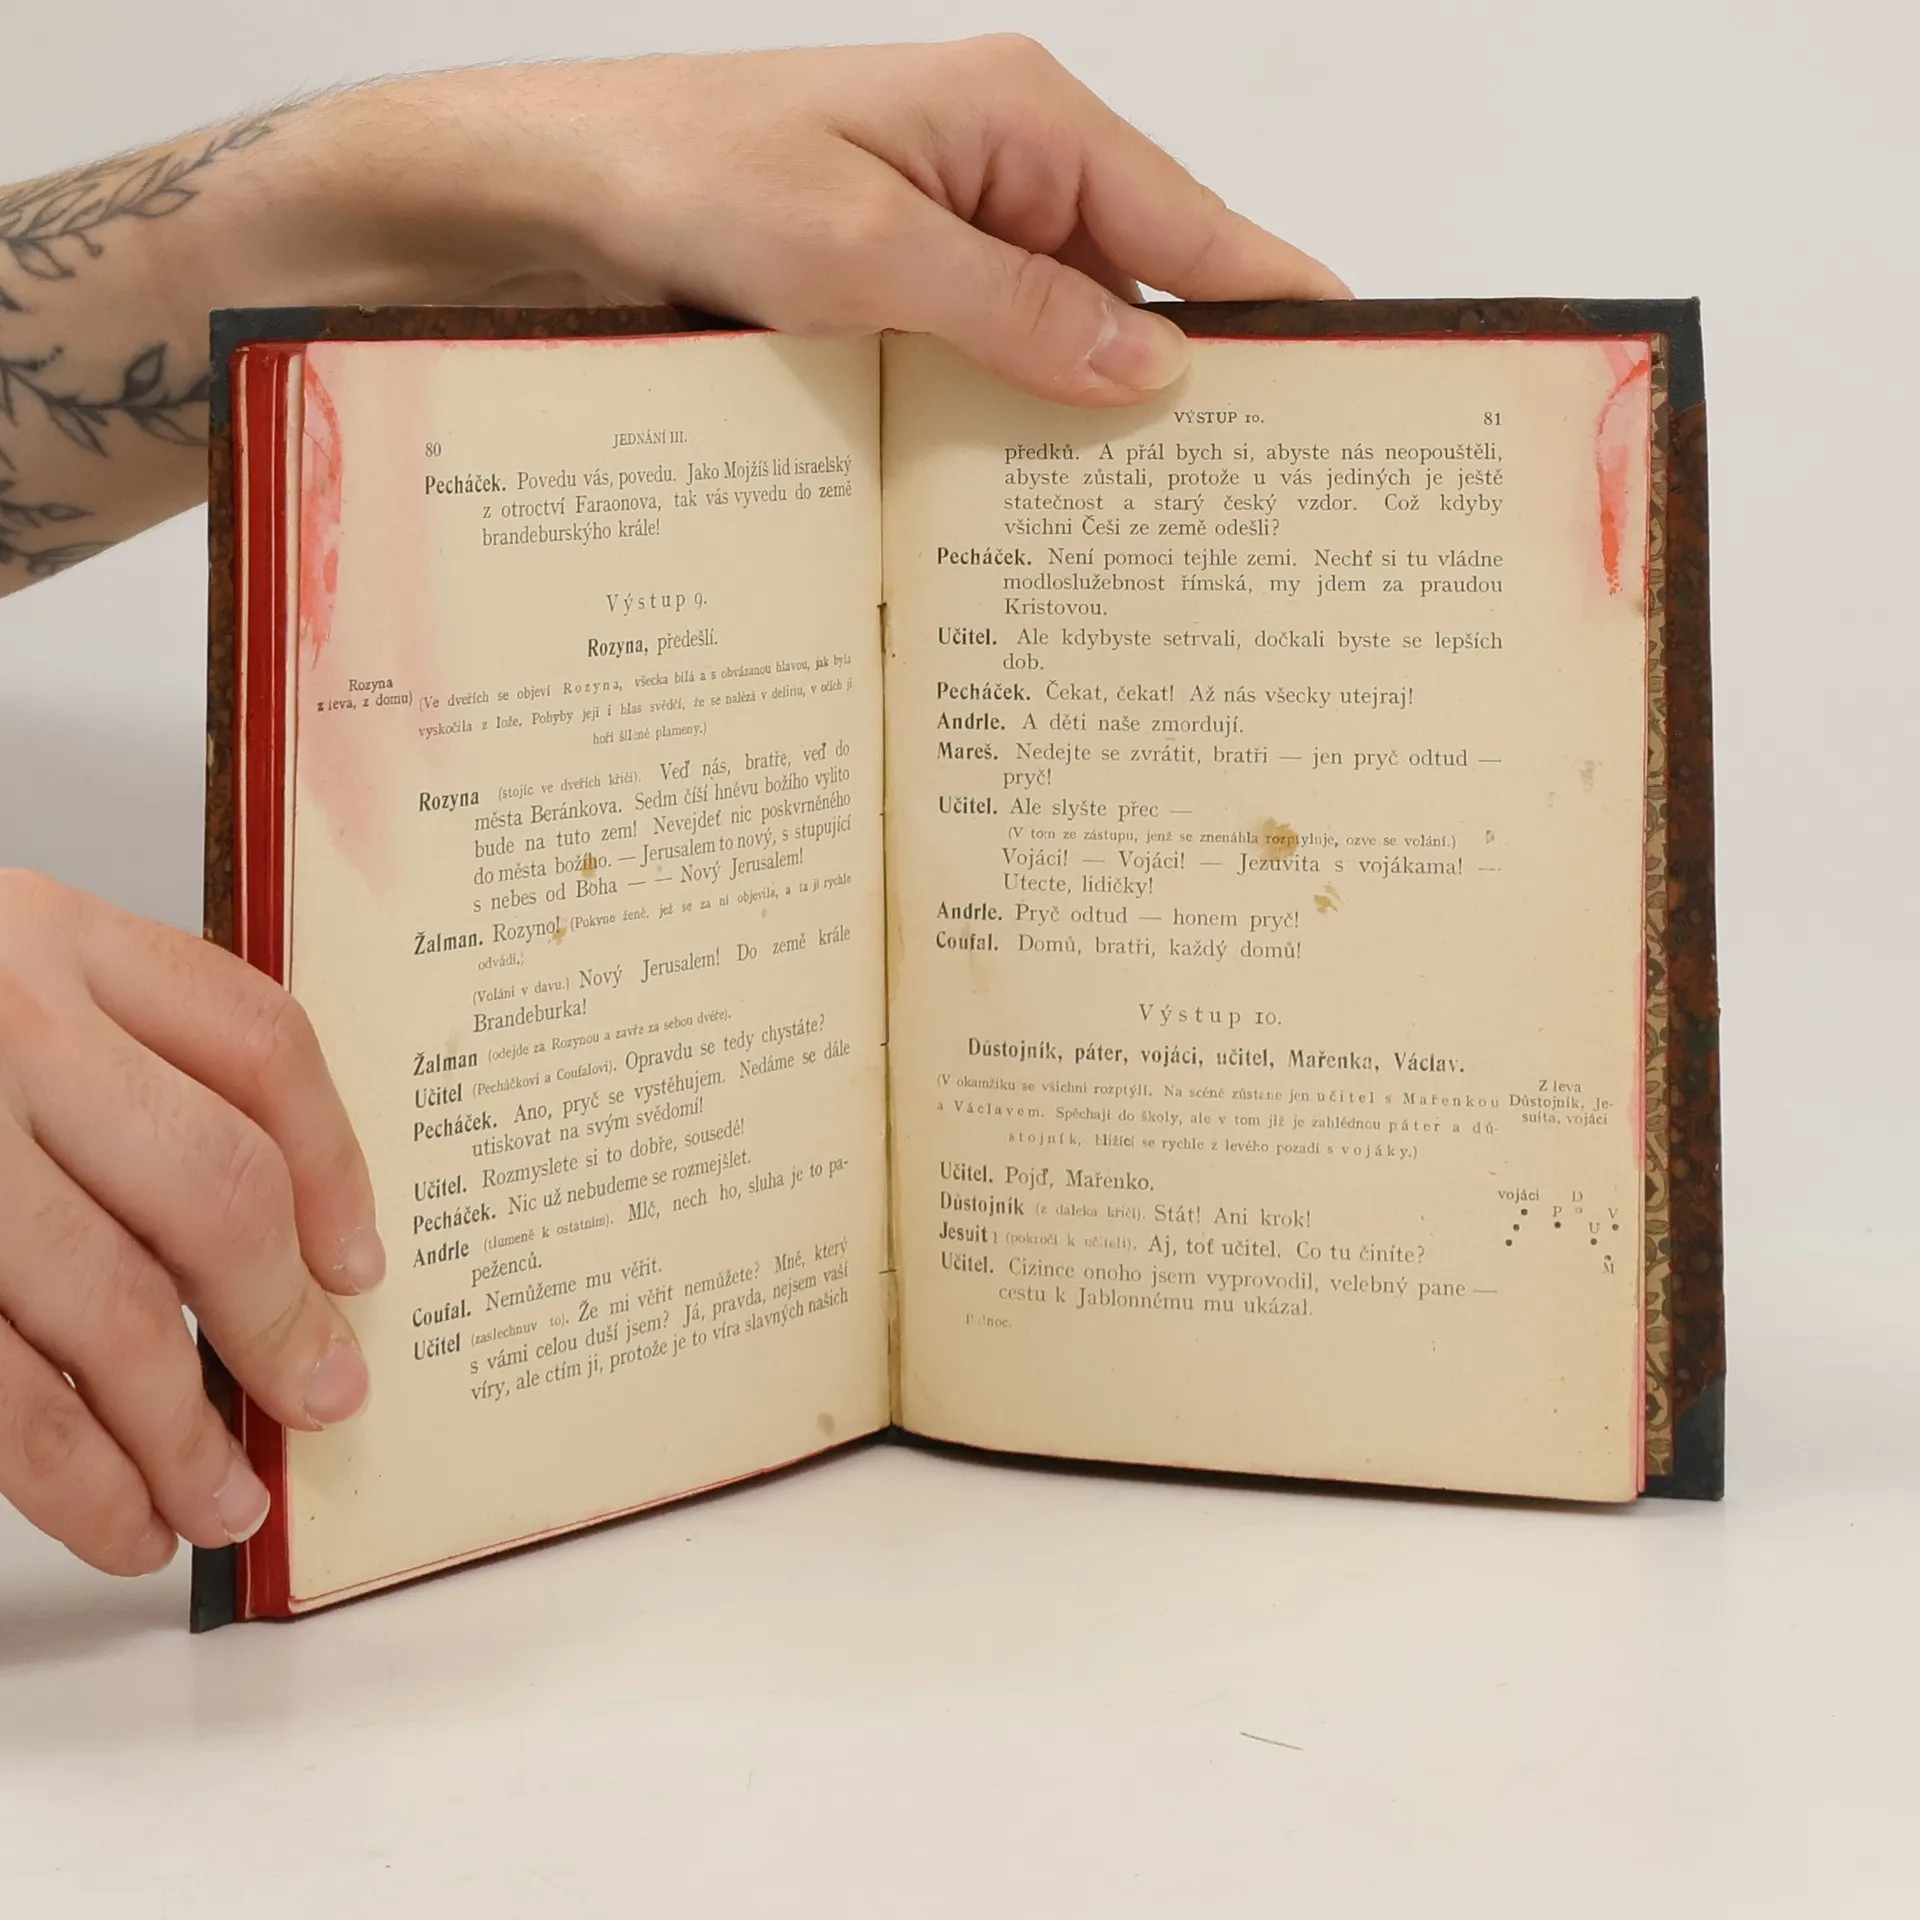 80
JEDNÁNÍ III.
Pecháček. Povedu vás, povedu. Jako Mojžíš lid israelský
z otroctví Faraonova, tak vás vyvedu do země
brandeburskýho krále!
Výstup 9.
Rozyna, předešlí.
Rozyna
z leva, z domu)
(Ve dveřích se objeví Rozyna, všecka bílá a s obvázanou hlavou, jak byla
vyskočila z lože. Pohyby její i hlas svědčí, že se nalézá v deliriu, v očích jí
hoří šílené plameny.)
Rozyna (stojíc ve dveřích křičí). Veď nás, bratře, veď do
města Beránkova. Sedm číší hněvu božího vylito
bude na tuto zem! Nevejdeť nic poskvrněného
do města božího. — Jerusalem to nový, s stupující
s nebes od Boha — — Nový Jerusalem!
Žalman. Rozyno! (Pokyne ženě, jež se za ní objevila, a ta ji rychle
odvádí.)
(Volání v davu.) Nový Jerusalem! Do země krále
Brandeburka!
Žalman (odejde za Rozynou a zavře za sebou dvéře).
Učitel (Pecháčkovi a Coufalovi). Opravdu se tedy chystáte?
Pecháček. Ano, pryč se vystěhujem. Nedáme se dále
utiskovat na svým svědomí!
Učitel. Rozmyslete si to dobře, sousedé!
Pecháček. Nic už nebudeme se rozmejšlet.
Andrle (tlumeně k ostatním). Mlč, nech ho, sluha je to pa-
peženců.
Coufal. Nemůžeme mu věřit.
Učitel (zaslechnuv to). Že mi věřit nemůžete? Mně, který
s vámi celou duší jsem? Já, pravda, nejsem vaší
víry, ale ctím ji, protože je to víra slavných našich
VÝSTUP 10.
81
předků. A přál bych si, abyste nás neopouštěli,
abyste zůstali, protože u vás jediných je ještě
statečnost a starý český vzdor. Což kdyby
všichni Češi ze země odešli?
Pecháček. Není pomoci tejhle zemi. Nechť si tu vládne
modloslužebnost římská, my jdem za praudou
Kristovou.
Učitel. Ale kdybyste setrvali, dočkali byste se lepších
dob.
Pecháček. Čekat, čekat! Až nás všecky utejraj!
Andrle. A děti naše zmordují.
Mareš. Nedejte se zvrátit, bratři — jen pryč odtud —
pryč!
Učitel. Ale slyšte přec —
(V tom ze zástupu, jenž se znenáhla rozptyluje, ozve se volání.)
Vojáci! — Vojáci! — Jezuvita s vojákama! —
Utecte, lidičky!
Andrle. Pryč odtud — honem pryč!
Coufal. Domů, bratři, každý domů!
Výstup 10.
Důstojník, páter, vojáci, učitel, Mařenka, Václav.
(V okamžiku se všichni rozptýlí. Na scéně zůstane jen učitel s Mařenkou
a Václavem. Spěchají do školy, ale v tom již je zahlédnou páter a dů-
stojník, blížící se rychle z levého pozadí s vojáky.)
Z leva
Důstojník, Je-
suita, vojáci
Učitel. Pojď, Mařenko.
Důstojník (z daleka křičí). Stát! Ani krok!
Jesuita (pokročí k učiteli). Aj, toť učitel. Co tu činíte?
Učitel. Cizince onoho jsem vyprovodil, velebný pane —
cestu k Jablonnému mu ukázal.
vojáci D
P V
U
M